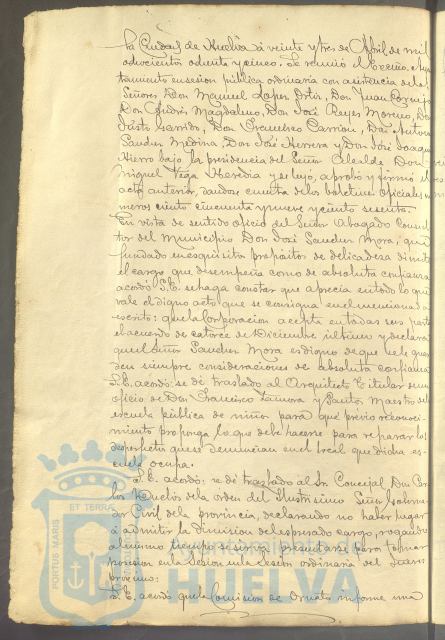 la Ciudad de Huelva á veinte y tres de Abril de mil
ochocientos ochenta y cinco. Se reunió el Excmo. Ayun
tamiento en sesion pública ordinaria con asistencia de los
Señores Don Manuel Lopez Ortiz, Don Juan
Don Andrés Magdaleno, Don José Reyes Moreno, Don
Justo Garrido, Don Francisco Carrion, Don Antonio
Sanchez Medina Don José Herrera y Don José Joaquin
Hierro bajo la presidencia del Señor Alcalde Don
Miguel Vega Heredia y se leyó, aprobó y firmó el
acta anterior, dandose cuenta de los boletines oficiales nú
meros ciento cincuenta y nueve y ciento sesenta.
En vista de sentido oficio del Señor Abogado Consul
tor del Municipio Don José Sanchez Mora, que
fundado en esquisitos propósitos de delicadeza dimite
el cargo que desempeña como de absoluta confianza
acordó S.E. se haga constar que aprecia en todo lo que
vale el digno acto que se consigna en el mencionado
escrito: que la Corporacion acepta en todas sus partes
el acuerdo de catorce de Diciembre último y declara
que el Señor Sanchez Mora es digno de que se le guar
den siempre consideraciones de absoluta confianza
S.E. acordó: se dé traslado al Arquitecto titular de un
oficio de Don Francisco Zamora y Santos Maestro de la
escuela pública de niños para que previo reconoci
miento proponga lo que debe hacerse para reparar los
desperfectos que se denuncian en el local que dicha es
cuela ocupa.
S.E. acordó: se dé traslado al Sr. Concejal Don Car
los de la orden del Ilustrisimo Señor Goberna
dor Civil de la provincia, declarando no haber lugar
á admitir la dimision del espresado cargo, rogando
al mismo tiempo se sirva presentarse para tomar
posesion en la sesion en la sesion ordinaria del Jueves
proximo:
S.E. acordó que la Comision de Ornato informe una
PORTUS MARIS
ET TERRAE
HUELVA